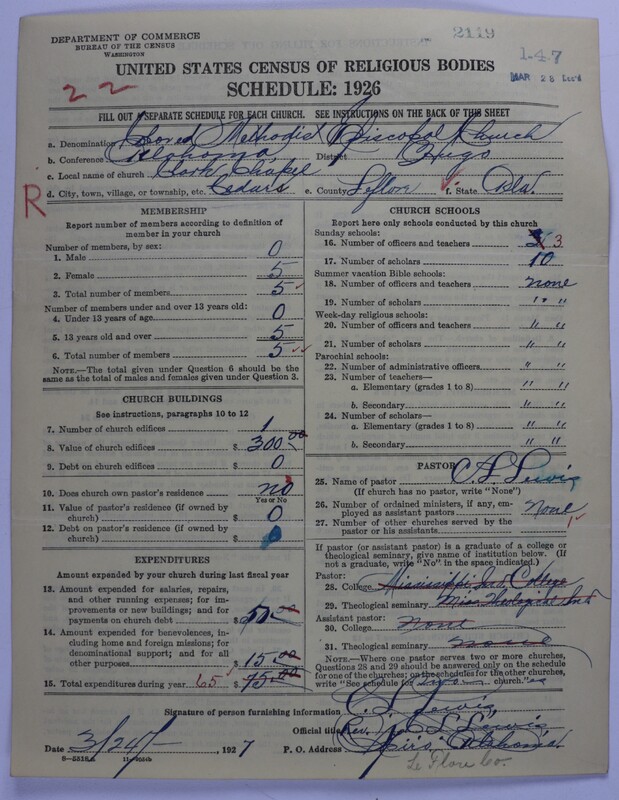 DEPARTMENT OF COMMERCE
BUREAU OF THE CENSUS
WASHINGTON
2119
1-47
MAR 28 Rec'd
UNITED STATES CENSUS OF RELIGIOUS BODIES
SCHEDULE: 1926
22
FILL OUT A SEPARATE SCHEDULE FOR EACH CHURCH. SEE INSTRUCTIONS ON THE BACK OF THIS SHEET
a. Denomination Colored Methodist Episcopal Church
b. Conference Oklahoma District Hugo
c. Local name of church Clark Chapel
d. City, town, village, or township, etc. Cedars e. County Leflore f. State Okla.
R
MEMBERSHIP
Report number of members according to definition of member in your church
Number of members, by sex:
1. Male 0
2. Female 5
3. Total number of members 5
Number of members under and over 13 years old:
4. Under 13 years of age 0
5. 13 years old and over 5
6. Total number of members 5
NOTE.—The total given under Question 6 should be the same as the total of males and females given under Question 3.
CHURCH BUILDINGS
See instructions, paragraphs 10 to 12
7. Number of church edifices 1
8. Value of church edifices $ 300.00
9. Debt on church edifices $ 0
10. Does church own pastor's residence no
Yes or No
11. Value of pastor's residence (if owned by church) $ 0
12. Debt on pastor's residence (if owned by church) $ 0
EXPENDITURES
Amount expended by your church during last fiscal year
13. Amount expended for salaries, repairs, and other running expenses; for improvements or new buildings; and for payments on church debt $ 50.00
14. Amount expended for benevolences, including home and foreign missions; for denominational support; and for all other purposes $ 15.00
15. Total expenditures during year 65 $ 75.00
CHURCH SCHOOLS
Report here only schools conducted by this church
Sunday schools:
16. Number of officers and teachers 3
17. Number of scholars 10
Summer vacation Bible schools:
18. Number of officers and teachers none
19. Number of scholars " "
Week-day religious schools:
20. Number of officers and teachers " "
21. Number of scholars " "
Parochial schools:
22. Number of administrative officers " "
23. Number of teachers—
a. Elementary (grades 1 to 8) " "
b. Secondary " "
24. Number of scholars—
a. Elementary (grades 1 to 8) " "
b. Secondary " "
PASTOR
25. Name of pastor C. L. Lewis
(If church has no pastor, write "None")
26. Number of ordained ministers, if any, employed as assistant pastors None
27. Number of other churches served by the pastor or his assistants 1
If pastor (or assistant pastor) is a graduate of a college or theological seminary, give name of institution below. (If not a graduate, write "No" in the space indicated.)
Pastor:
28. College Mississippi Ind. College
29. Theological seminary Miss Theological Ind
Assistant pastor:
30. College none
31. Theological seminary none
NOTE.—Where one pastor serves two or more churches, Questions 28 and 29 should be answered only on the schedule for one of the churches; on the schedules for the other churches, write "See schedule for church."
Signature of person furnishing information C. L. Lewis
Official title Rev. C. L. Lewis
Date 3/24/— 1927 P. O. Address Spiro, Oklahoma.
Le Flore Co.
8-5518a